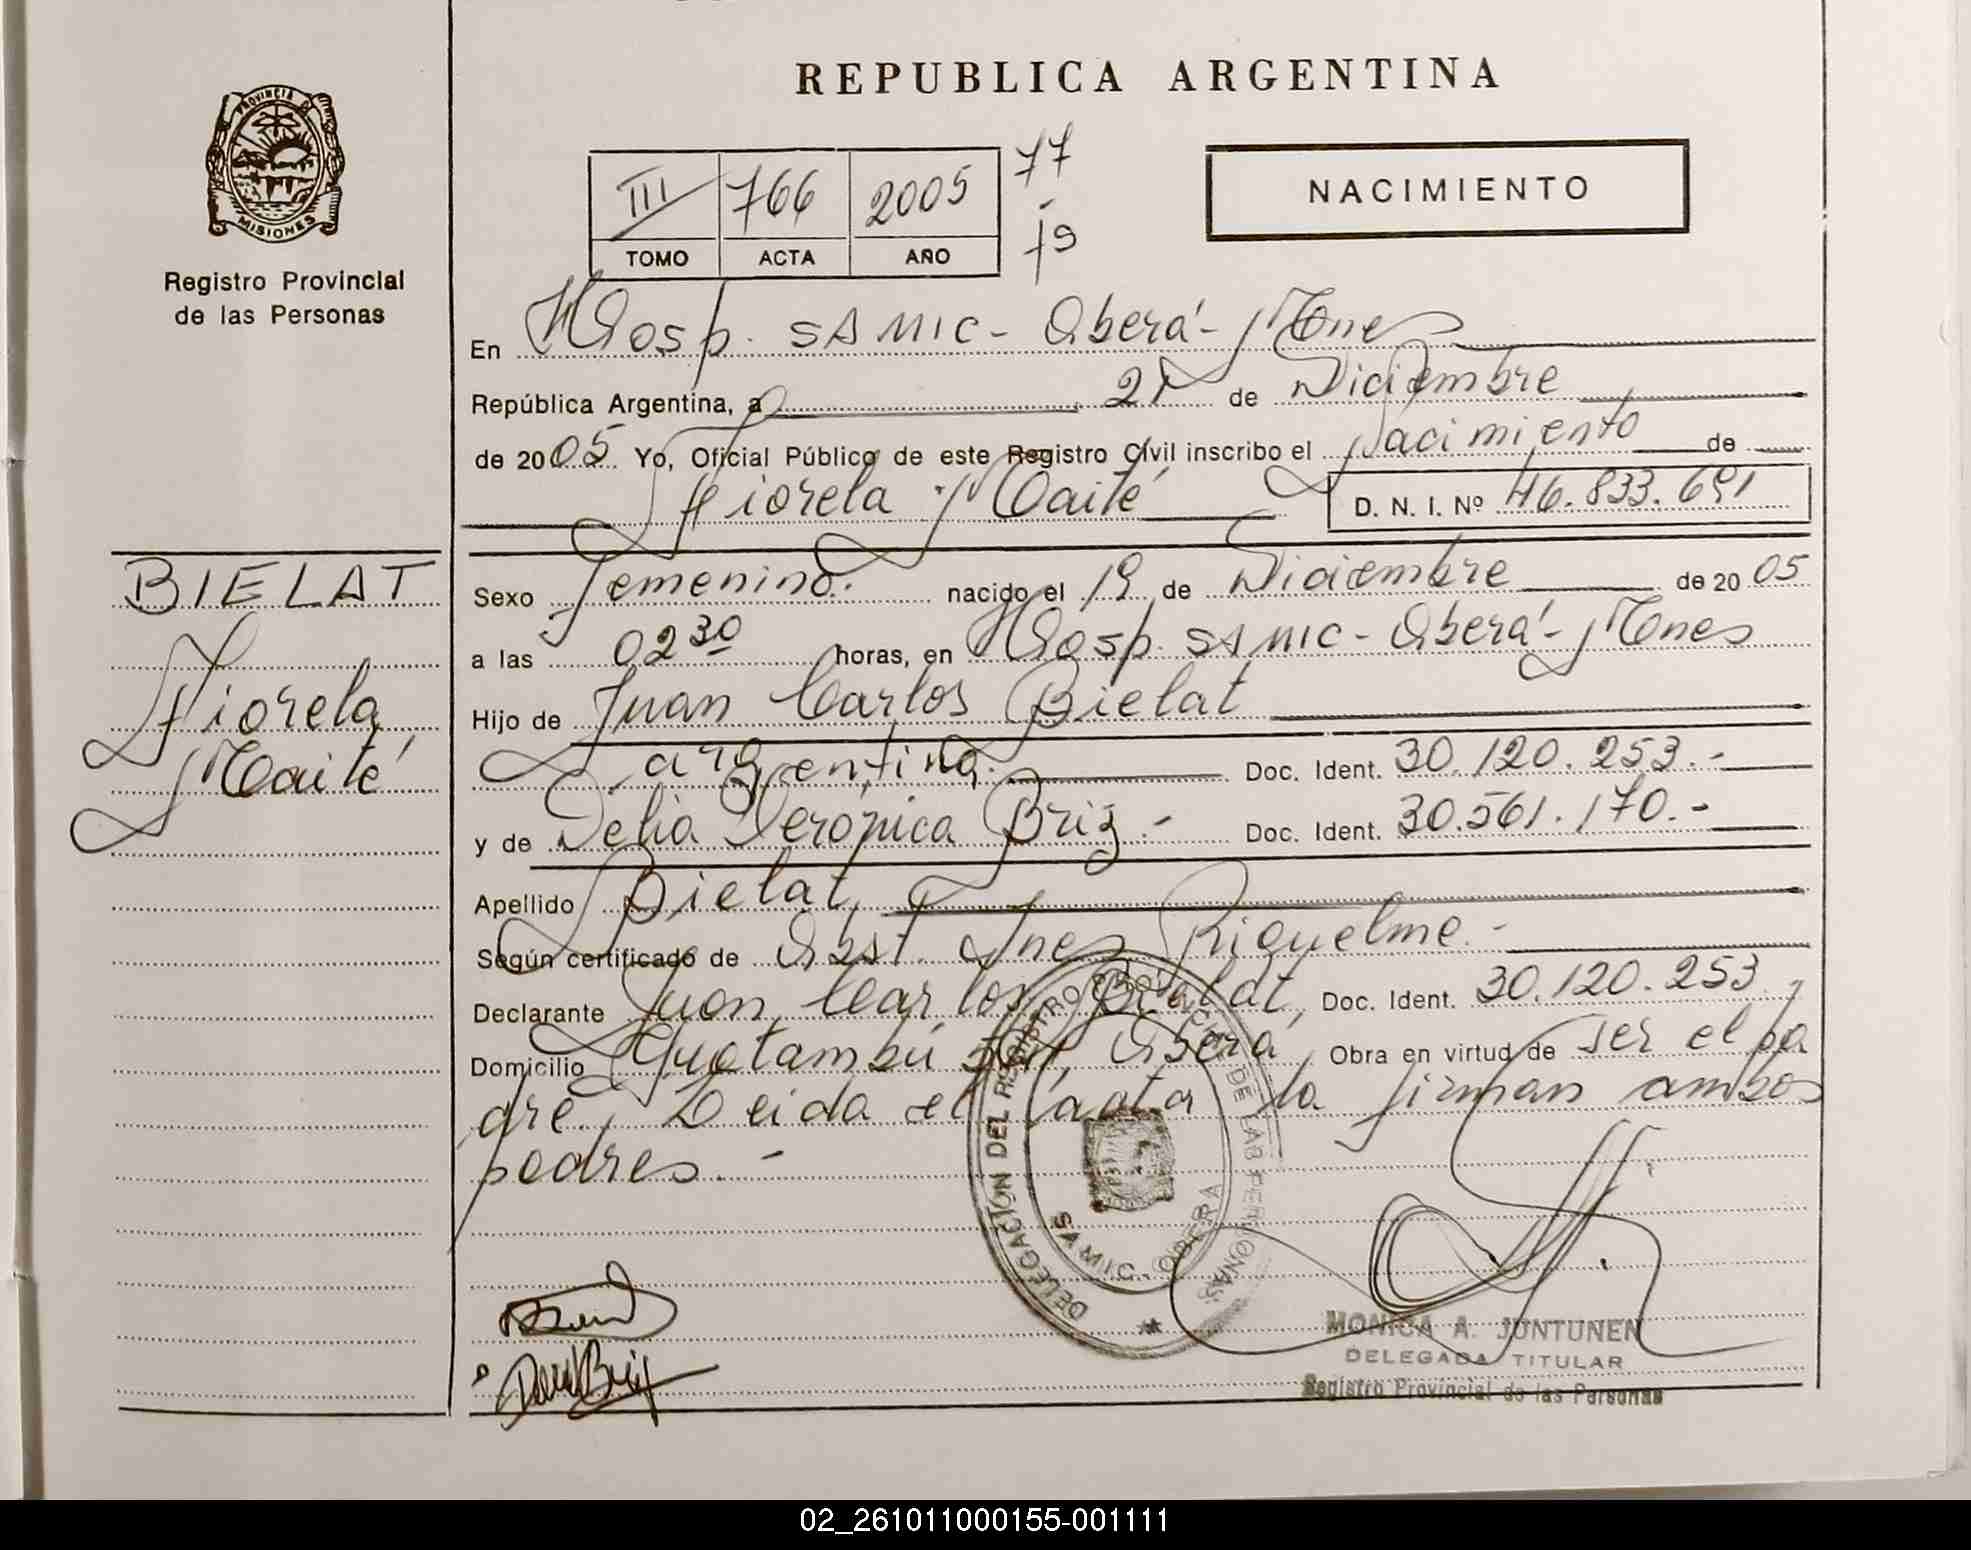 REPUBLICA ARGENTINA
PROVINCIA D
MISIONES
Registro Provincial
de las Personas
III 766 2005
TOMO ACTA AÑO
77
NACIMIENTO
En Hosp. SAMIC - Oberá - Mnes
República Argentina, a 21 de Diciembre
de 2005 Yo, Oficial Público de este Registro Civil inscribo el Nacimiento de
Fiorela Maité D. N. I. Nº 46.833.691
BIELAT
Fiorela
Maité
Sexo femenino. nacido el 19 de Diciembre de 2005
a las 02 30 horas, en Hosp. SAMIC - Oberá - Mnes
Hijo de Juan Carlos Bielat
argentina. Doc. Ident. 30.120.253.-
y de Delia Verónica Briz.- Doc. Ident. 30.561.170.-
Apellido Bielat
Según certificado de Obst. Ines Riquelme.-
Declarante Juan Carlos Bielat, Doc. Ident. 30.120.253
Domicilio Guatambú Oberá, Obra en virtud de ser el pa
dre, Leida el acta la firman ambos
padres.-
DELEGACIÓN DEL REGISTRO DE LAS PERSONAS
SAMIC - OBERA
MONICA A. JUNTUNEN
DELEGADA TITULAR
Registro Provincial de las Personas
02_261011000155-001111